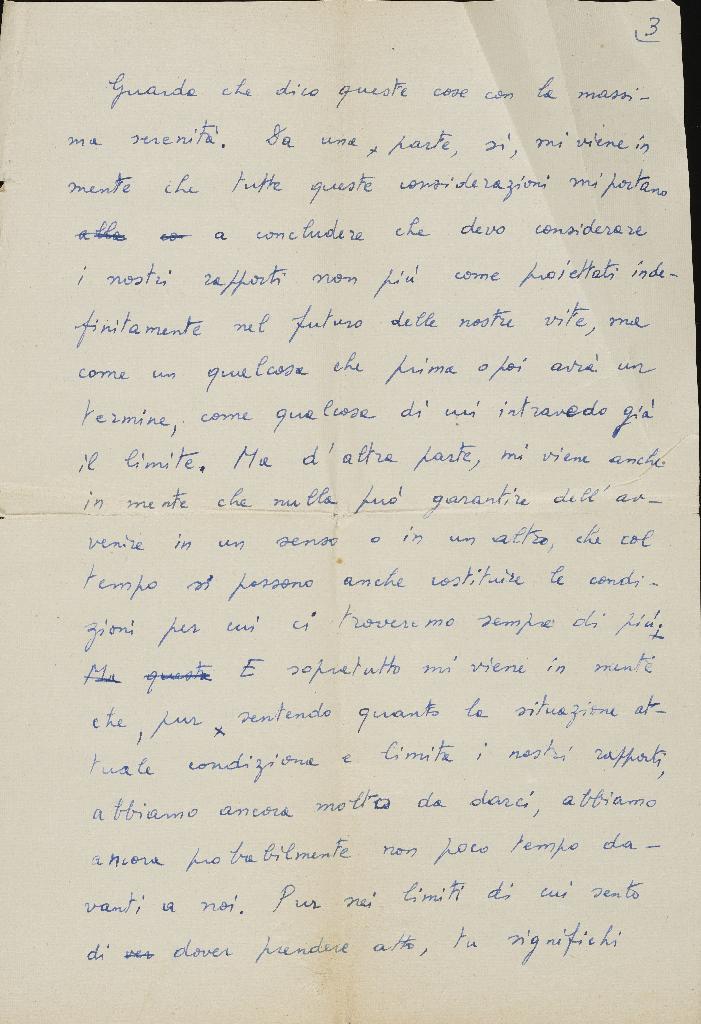 3
Guarda che dico queste cose con la massi-
ma serenità. Da una x parte, sì, mi viene in
mente che tutte queste considerazioni mi portano
alla co a concludere che devo considerare
i nostri rapporti non più come proiettati inde-
finitamente nel futuro delle nostre vite, ma
come un qualcosa che prima o poi avrà un
termine, come qualcosa di cui intravedo già
il limite. Ma d'altra parte, mi viene anche
in mente che nulla può garantire dell'av-
venire in un senso o in un altro, che col
tempo si possono anche costituire le condi-
zioni per cui ci troveremo sempre di più.
Ma questa E sopratutto mi viene in mente
che, pur x sentendo quanto la situazione at-
tuale condiziona e limita i nostri rapporti,
abbiamo ancora molto da darci, abbiamo
ancora probabilmente non poco tempo da-
vanti a noi. Pur nei limiti di cui sento
di ver dover prendere atto, tu significhi